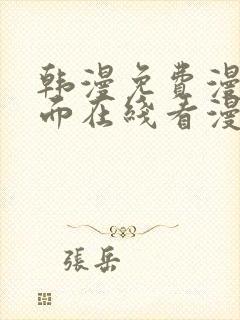 韩漫免費漫
而在綫看漫
張岳